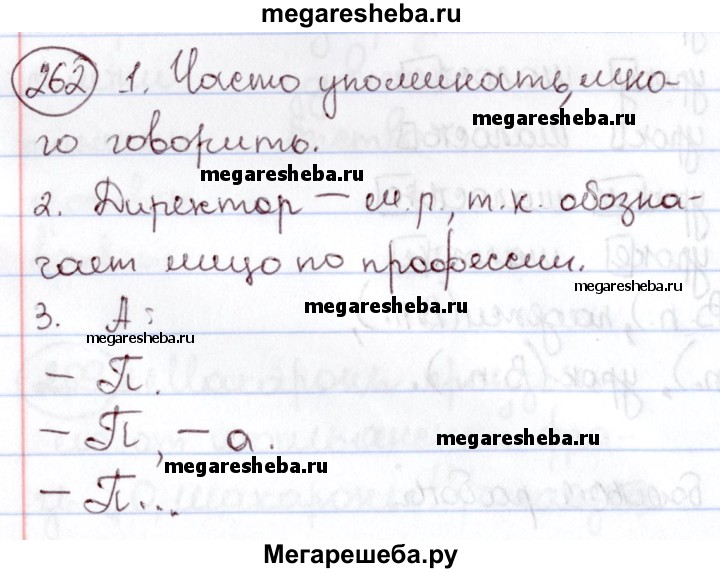 megaresheba.ru
262 1. Часто упоминать, мно-
megaresheba.ru
го говорить.
megaresheba.ru
2. Директор – м.р., т.к. обозна-
чает лицо по профессии.
megaresheba.ru
megaresheba.ru
3. А:
megaresheba.ru
– П.
– П, – а.
megaresheba.ru
megaresheba.ru
– П...
Мегарешеба.ру